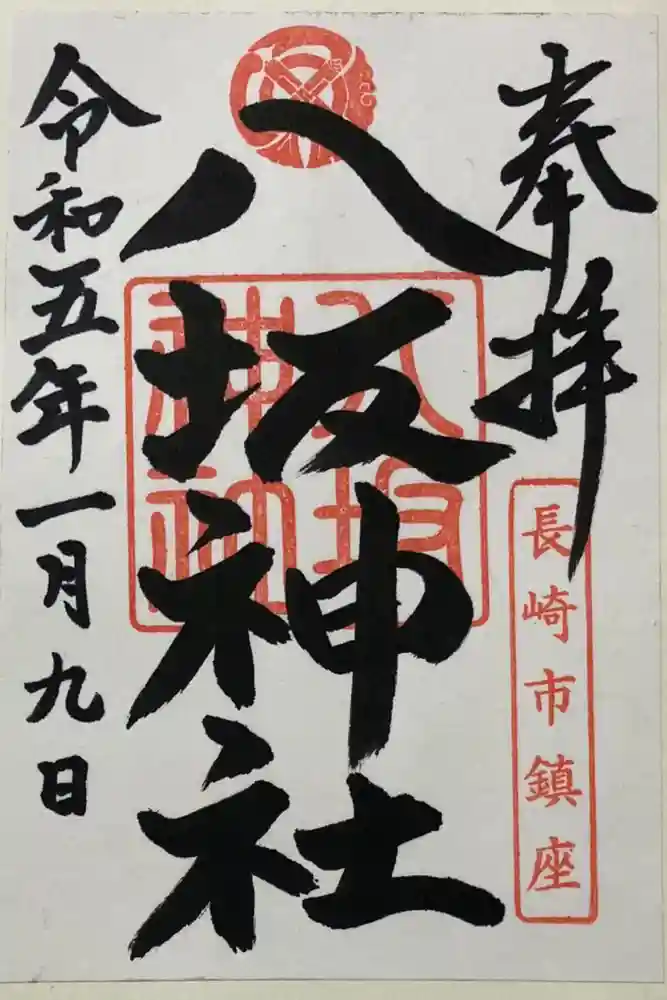 奉拝
長崎市鎮座
八坂神社
令和五年一月九日